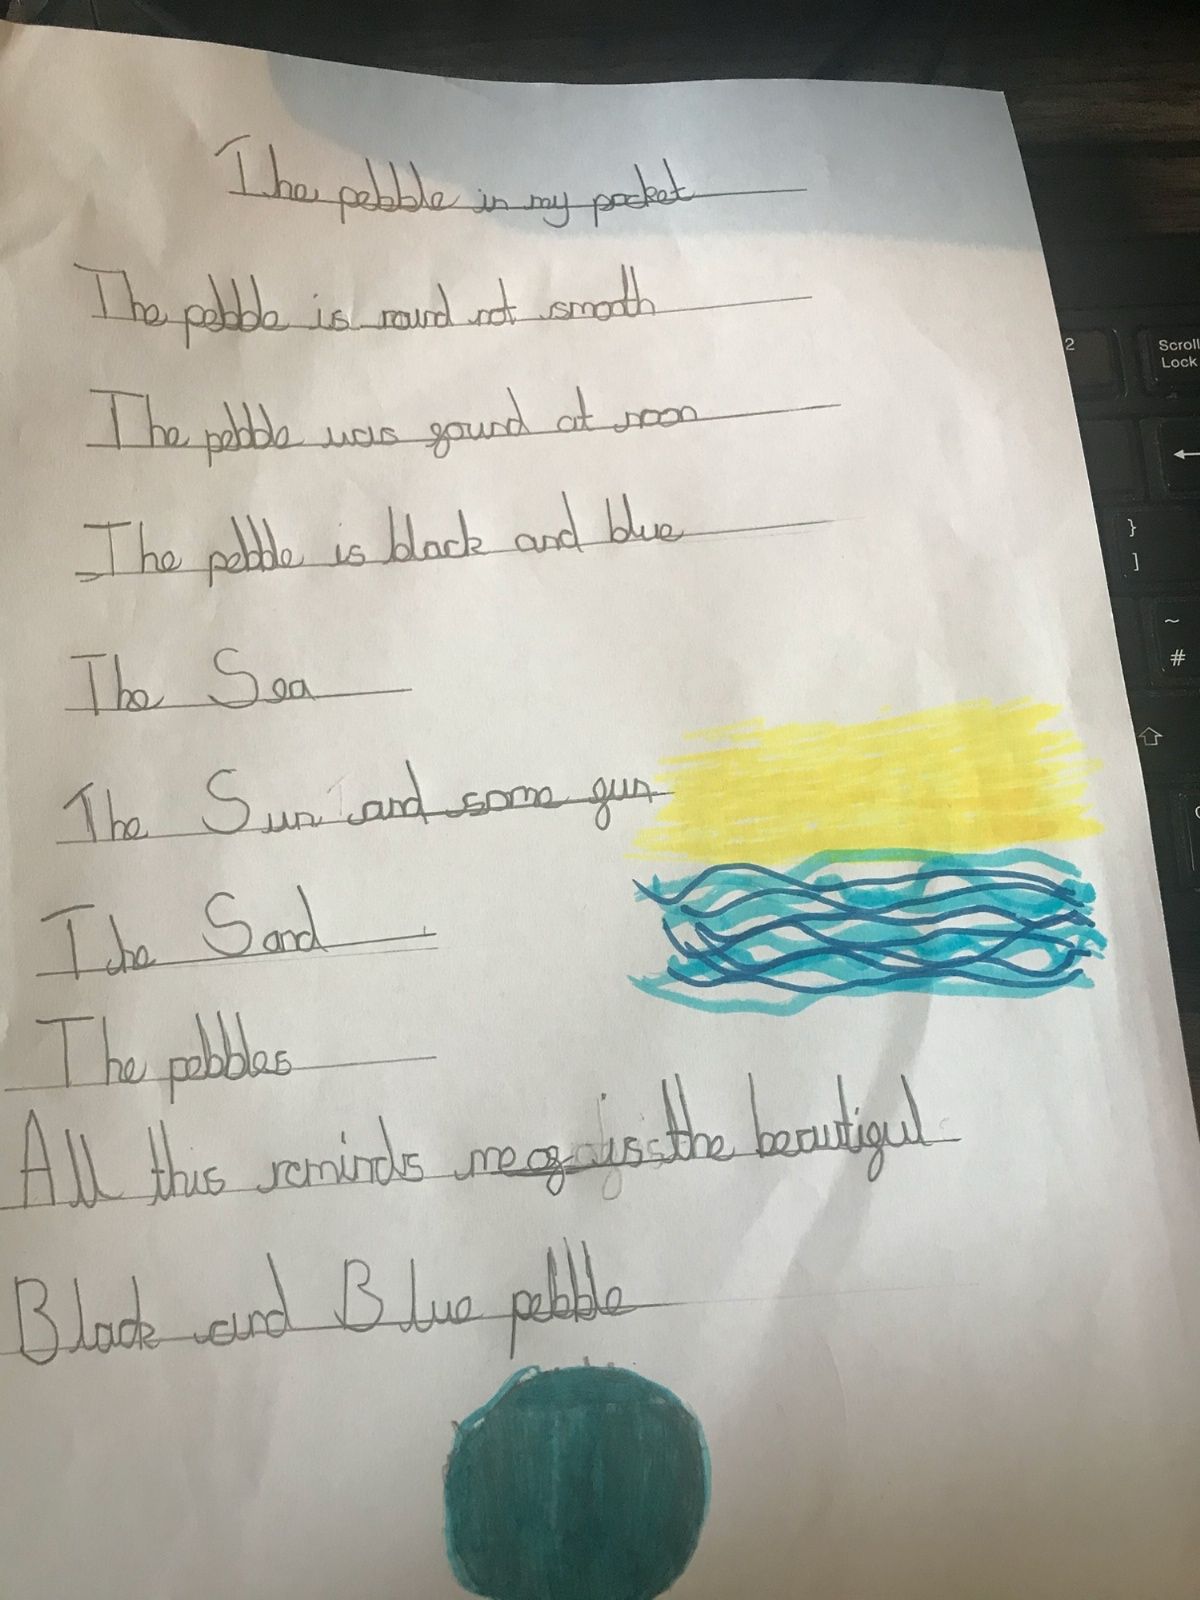 The pebble in my pocket
The pebble is round not smooth
The pebble was found at noon
The pebble is black and blue
The Sea
The Sun and some fun
The Sand
The pebbles
All this reminds me of is the beautiful
Black and Blue pebble
2
Scroll
Lock
}
]
~
#